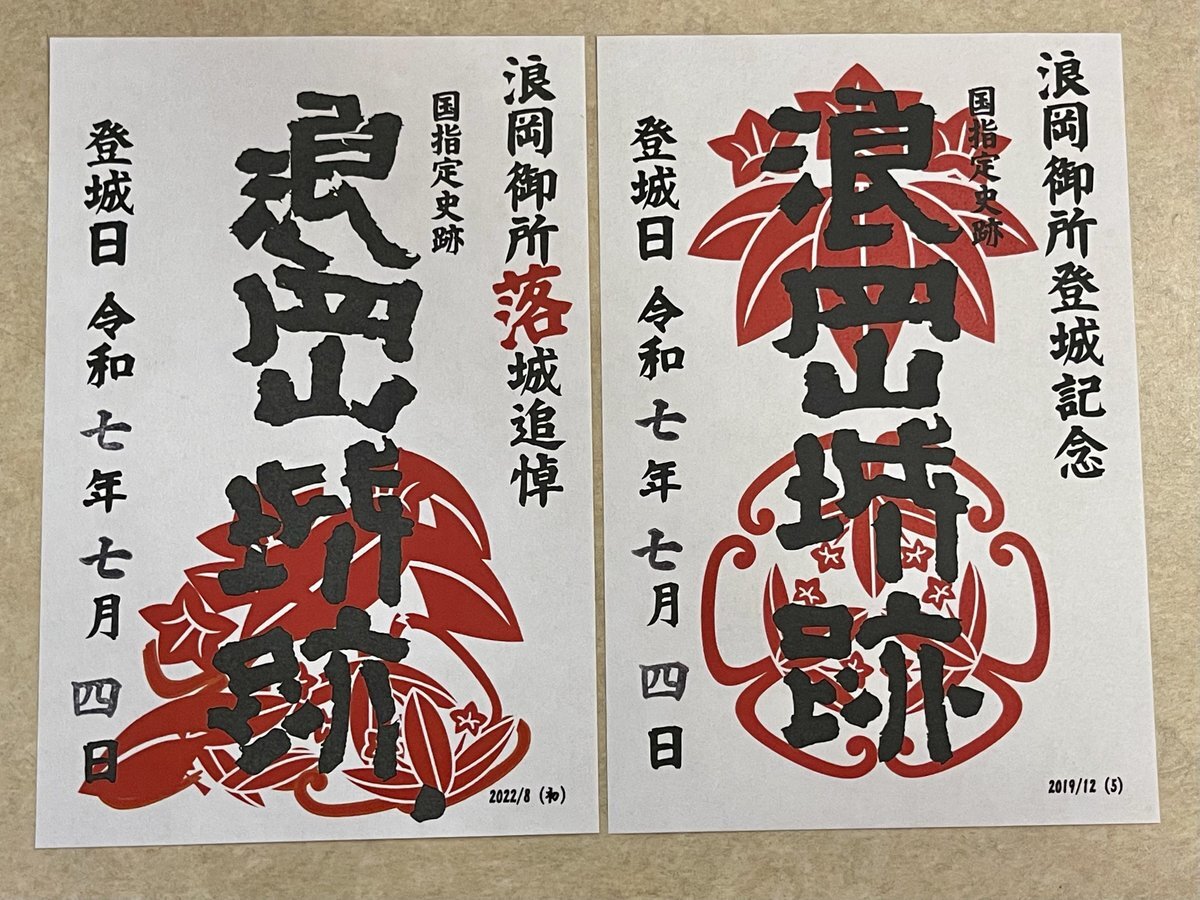 浪岡御所落城追悼
国指定史跡
浪岡城跡
登城日 令和 七年 七月 四日
2022/8 (初)
浪岡御所登城記念
国指定史跡
浪岡城跡
登城日 令和 七年 七月 四日
2019/12 (5)